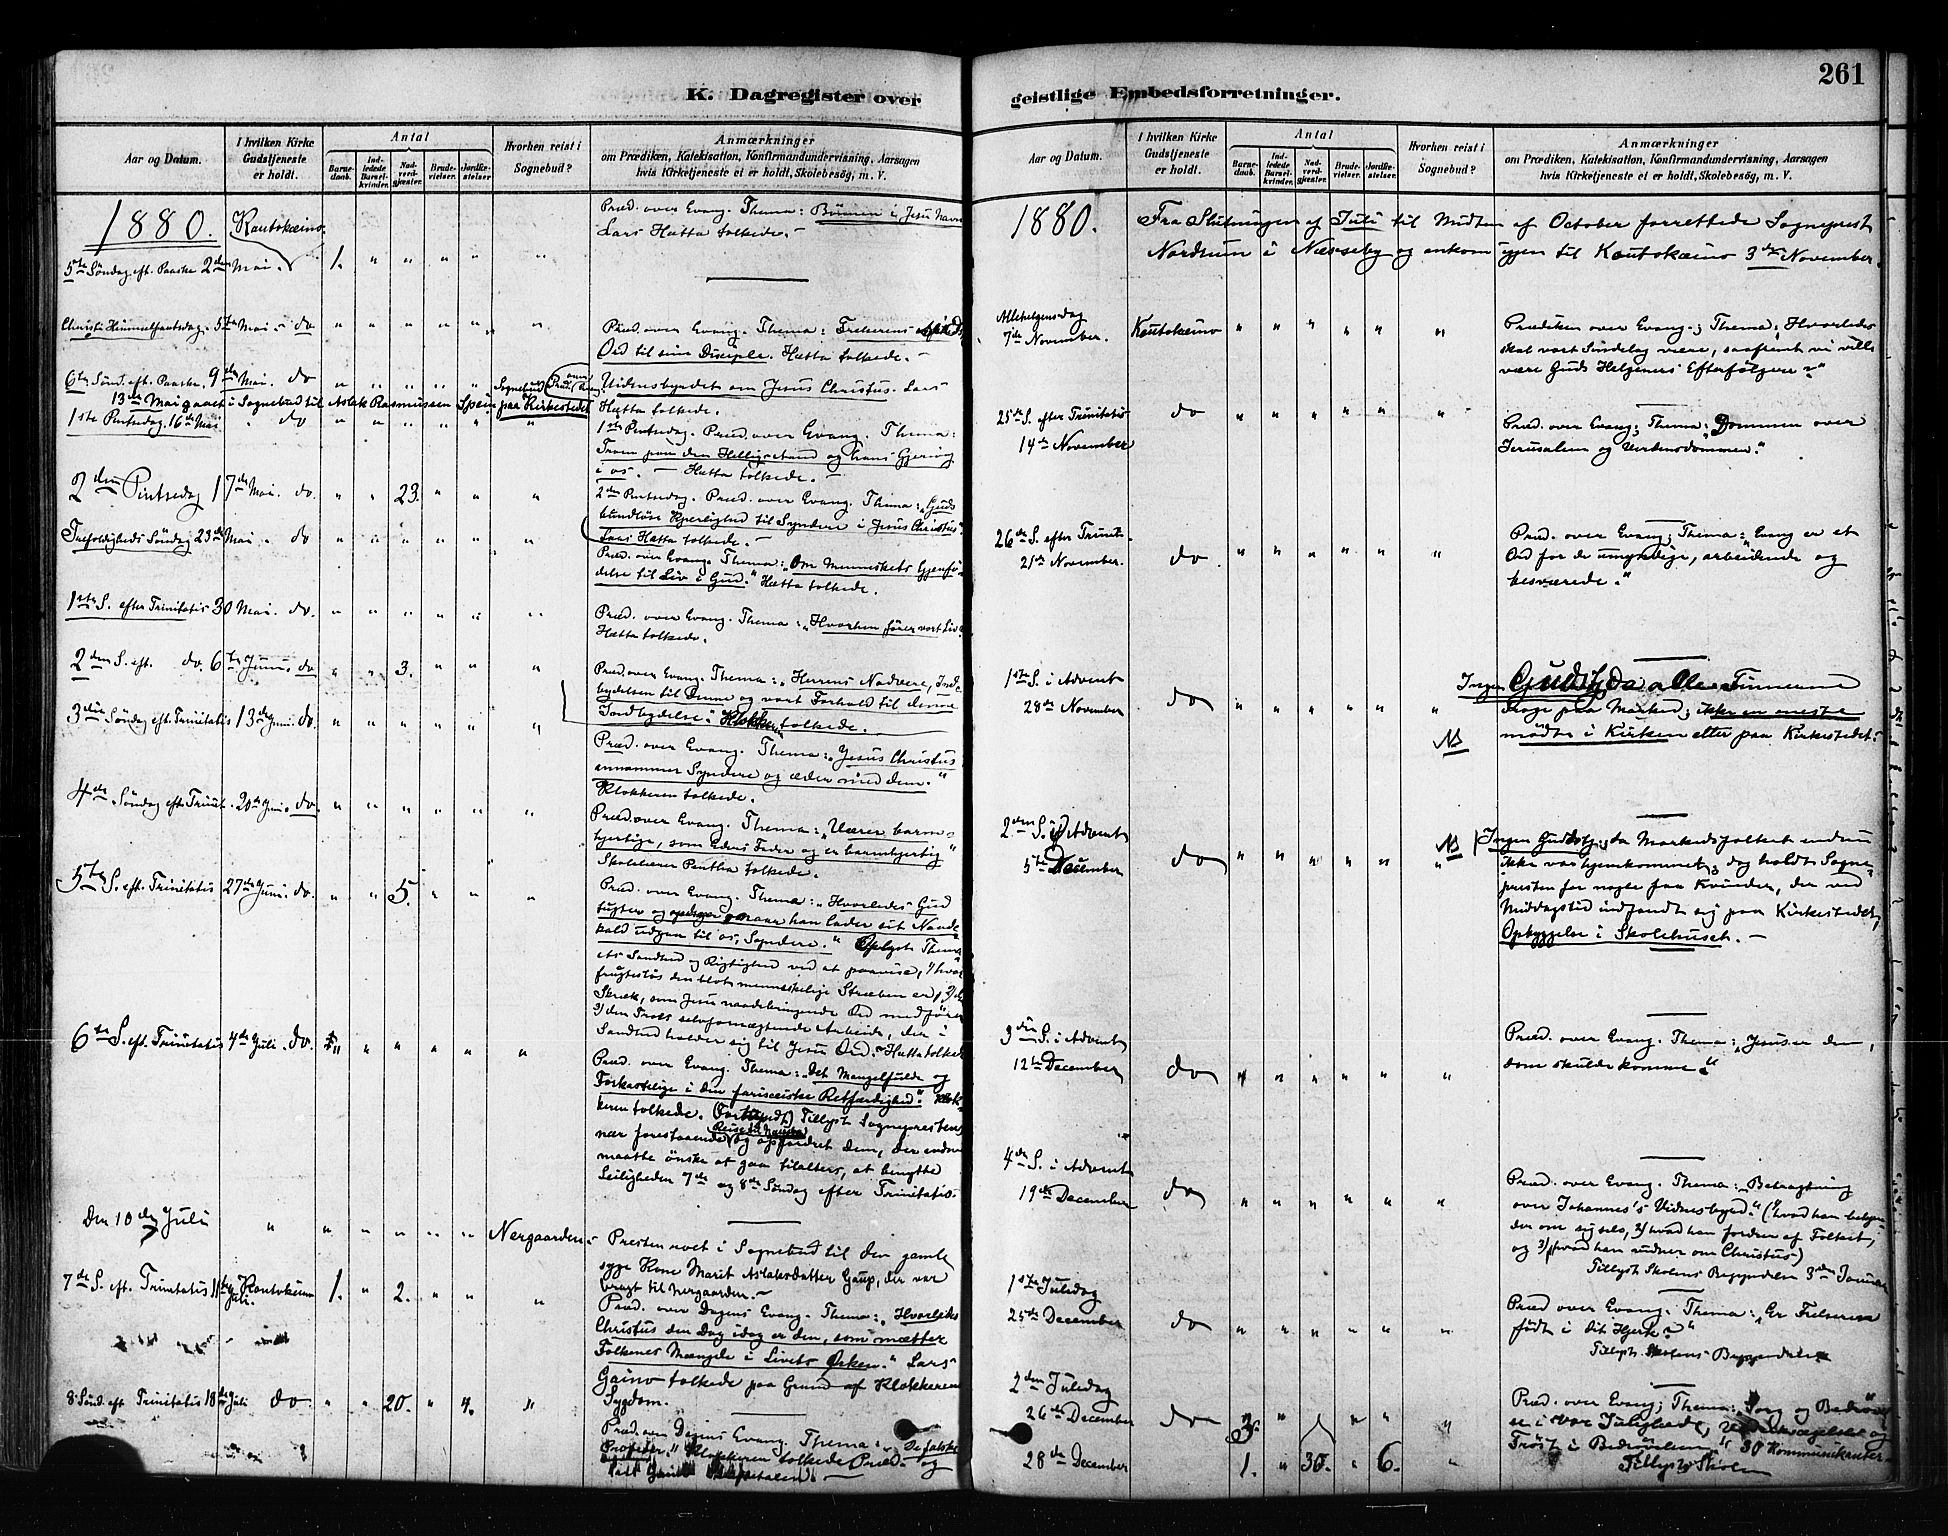 261
K. Dagregister over
geistlige Embedsforretninger.
Aar og Datum.
I hvilken Kirke
Gudstjeneste
er holdt.
Antal
Barne-
daab.
Ind-
ledede
Barsel-
kvinder.
Nad-
verd-
gjæster.
Brude-
vielser.
Jordfæ-
stelser.
Hvorhen reist i
Sognebud?
Anmærkninger
om Prædiken, Katekisation, Konfirmandundervisning, Aarsagen
hvis Kirketjeneste ei er holdt, Skolebesøg, m. V.
1880.
Kautokeino
Præd. over Evang. Thema: Bønnen i Jesu Navn
Lars Hætta tolkede.
5te Søndag eft. Paaske 2den Mai. 1. " " " " "
Christi Himmelfartsdag. 5te Mai - do " " " " " "
Præd. over Evang. Thema: Frelserens Afskeds
Ord til sine Disciple. Hætta tolkede. -
6te Sønd. eft. Paaske. 9de Mai. do " " " " "
Vidnesbyrdet om Jesus Christus. Lars
Hætta tolkede.
13de Mai gaaet i Sognebud til Aslak Rasmussen Spein paa Kirkestedet
1ste Pintsedag. 16de Mai " do " " " " " "
1ste Pintsedag. Præd. over Evang. Thema:
Troen paa den Helligaand og hans Gjerning
i os. - Hætta tolkede. -
2den Pintsedag 17de Mai. do. " " 23. " " "
2den Pintsedag. Præd. over Evang. Thema: "Guds
bundløse Kjerlighed til Syndere i Jesus Christus".
Lars Hætta tolkede. -
Trefoldigheds Søndag 23de Mai. do " " " " " "
Præd. over Evang. Thema: "Om Menneskets Gjenfø-
delse til Liv i Gud." Hætta tolkede.
1ste S. efter Trinitatis 30 Mai. do. " " " " " "
Præd. over Evang. Thema: "Hvorhen fører vort Liv"
Hætta tolkede.
2den S. eft. do. 6te Juni. do " " 3. " " "
Præd. over Evang. Thema: "Herrens Nadvere, Ind-
bydelsen til Denne og vort Forhold til denne
Indbydelse." Klokkeren tolkede.
3die Søndag eft. Trinitatis 13de Juni. do. " " " " " "
Præd. over Evang. Thema: "Jesus Christus
annammer Syndere og æder med dem."
Klokkeren tolkede.
4de Søndag eft. Trinit. 20de Juni. do. " " " " " "
Præd. over Evang. Thema: "Værer barm-
hjertige, som Eders Fader og er barmhjertig"
Skolelærer Pentha tolkede.
5te S. eft. Trinitatis 27de Juni. do. " " 5. " " "
Præd. over Evang. Thema: "Hvorledes Gud
tugter og opdrager os naar han lader sit Naade-
kald udgaa til os, Syndere." Oplyst Thema-
ets Sandhed og Rigtighed ved at paavise, 1) hvor
frugtesløs den blot menneskelige Stræben er, 2) den
Skræk, som Jesu naadebringende Ord medfører
3) den Troes selvfornægtende Arbeide, der i
Sandhed holder sig til Jesu Ord. - Hætta tolkede
6te S. eft. Trinitatis 4de Juli. do. " " " " "
Præd. over Evang. Thema: "Det Mangelfulde og
Forkastelige i den farisæiske Retfærdighed." Klok-
keren tolkede. Tillyst Sogneprestens
nær forestaaende Reise til og opfordret Dem, der endnu
maatte ønske at gaa tilalters, at benytte
Leiligheden 7de og 8de Søndag efter Trinitatis.
Den 10de Juli " " " " " " Nergaarden.
Presten roet i Sognebud til den gamle
syge Kone Marit Aslaksdatter Gaup, der var
bragt til Nergaarden. -
7de S. eft. Trinitatis 11te Juli. Kautokeino 1. " 2. " " "
Præd. over Dagens Evang. Thema: "Hvorledes
Christus den Dag idag er den, som mætter
Folkenes Mængde i Livets Ørken." Lars
Gaino tolkede paa Grund af Klokkerens
Sygdom.
8 Sønd. eft. Trinitatis 18de Juli do. " " 20. " 4. "
Præd. over Dagens Evang. Thema: "De falske
Profeter." Klokkeren tolkede Præd. og
1880. Fra Slutningen af Juli til Midten af October forrettede Sogneprest
Nordrum i Næsseby og ankom igjen til Kautokeino 3die November.
Allehelgensdag
7de November. Kautokeino " " " " " "
Prædiken over Evang.; Thema: "Hvorledes
skal vort Sindelag være, saafremt vi ville
være Guds Helgeners Efterfølgere?"
25de S. efter Trinitatis
14de November do " " " " " "
Præd. over Evang; Thema: "Dommen over
Jerusalem og Verdensdommen."
26de S. efter Trinit.
21de November. do. " " " " " "
Præd. over Evang; Thema: "Evang er et
Ord for de umyndige, arbeidende og
besværede."
1ste S. i Advent
28de November do " " " " " "
NB
Ingen Gudstj. da alle Finnerne
droge paa Marked; ikke en eneste
mødte i Kirken eller paa Kirkestedet.
2den S. i Advent
5te December do " " " " " "
NB
Ingen Gudstj., da Markedsfolket endnu
ikke var hjemkommet; dog holdt Sogne-
presten for nogle faa Kvinder, der ved
Middagstid indfandt sig paa Kirkestedet,
Opbyggelse i Skolehuset. -
3die S. i Advent
12te December do " " " " " "
Præd. over Evang. Thema: "Jesus er den,
som skulde komme."
4de S. i Advent
19de December do " " " " " "
Præd. over Evang. Thema: "Betragtning
over Johannes's Vidnesbyrd." (1) hvad han bekjen-
der om sig selv, 2) hvad han fordrer af Folket,
og 3) hvad han vidner om Christus)
Tillyst Skolens Begyndelse 3die Januar
1ste Juledag
25de December do " " " " " "
Præd over Evang. Thema: "Er Frelseren
født i dit Hjerte?"
Tillyst Skolens Begyndelse
2den Juledag
26de December do " " " "
Præd. over Evang; Thema: "Sorg og Bedrøvel-
se i vor Juleglæde, og
Trøst i Bedrøvelsen." 30 Kommunikanter.
28de December 1. " 30. " 6. "
Tillyst Skolen